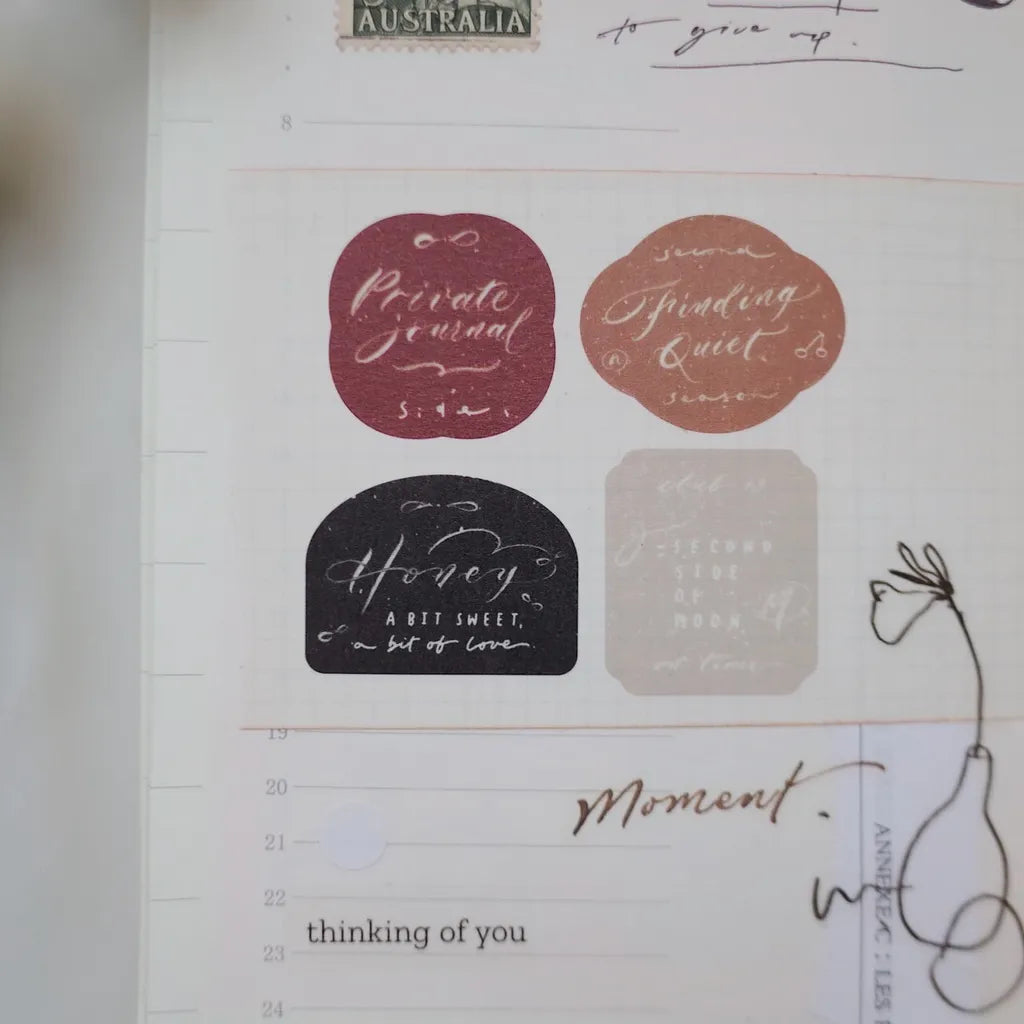 AUSTRALIA
to give up.
8
Private
journal
side.
second
Finding
Quiet
season
Honey
A BIT SWEET,
a bit of love
club
SECOND
SIDE
OF
MOON
19
20
Moment.
21
22
thinking of you
23
24
ANNEXE C : LES